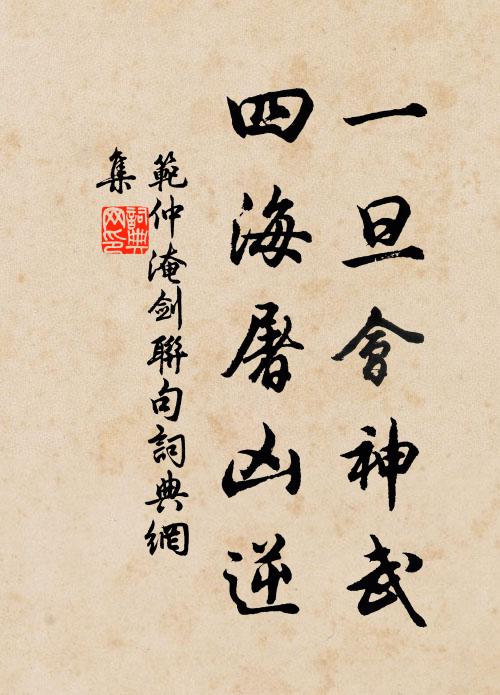 一旦會神武
四海屠凶逆
範仲淹劍聯句詞典網
集
詞典
网印